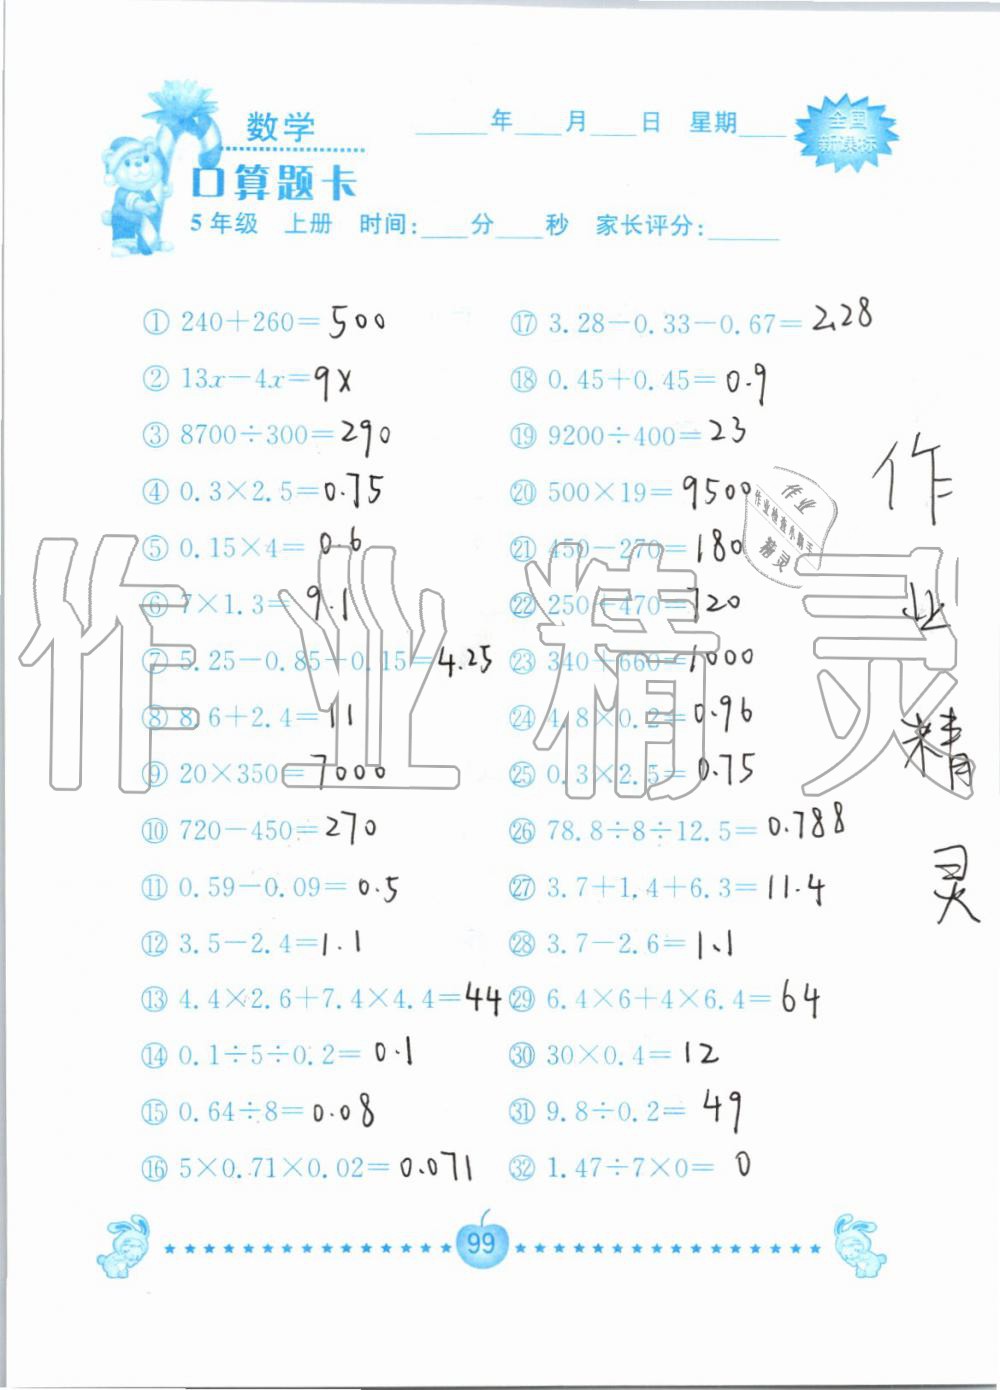 数学
____年____月____日 星期____
全国
新课标
口算题卡
5年级 上册 时间:____分____秒 家长评分:____
① 240+260=500
② 13x-4x=9x
③ 8700÷300=290
④ 0.3×2.5=0.75
⑤ 0.15×4=0.6
⑥ 7×1.3=9.1
⑦ 5.25-0.85-0.15=4.25
⑧ 8.6+2.4=11
⑨ 20×350=7000
⑩ 720-450=270
⑪ 0.59-0.09=0.5
⑫ 3.5-2.4=1.1
⑬ 4.4×2.6+7.4×4.4=44
⑭ 0.1÷5÷0.2=0.1
⑮ 0.64÷8=0.08
⑯ 5×0.71×0.02=0.071
⑰ 3.28-0.33-0.67=2.28
⑱ 0.45+0.45=0.9
⑲ 9200÷400=23
⑳ 500×19=9500
㉑ 450-270=180
㉒ 250+470=720
㉓ 340+660=1000
㉔ 4.8×0.2=0.96
㉕ 0.3×2.5=0.75
㉖ 78.8÷8÷12.5=0.788
㉗ 3.7+1.4+6.3=11.4
㉘ 3.7-2.6=1.1
㉙ 6.4×6+4×6.4=64
㉚ 30×0.4=12
㉛ 9.8÷0.2=49
㉜ 1.47÷7×0=0
作业精灵
作业
作业检查小助手
精灵
作
业
精
灵
99